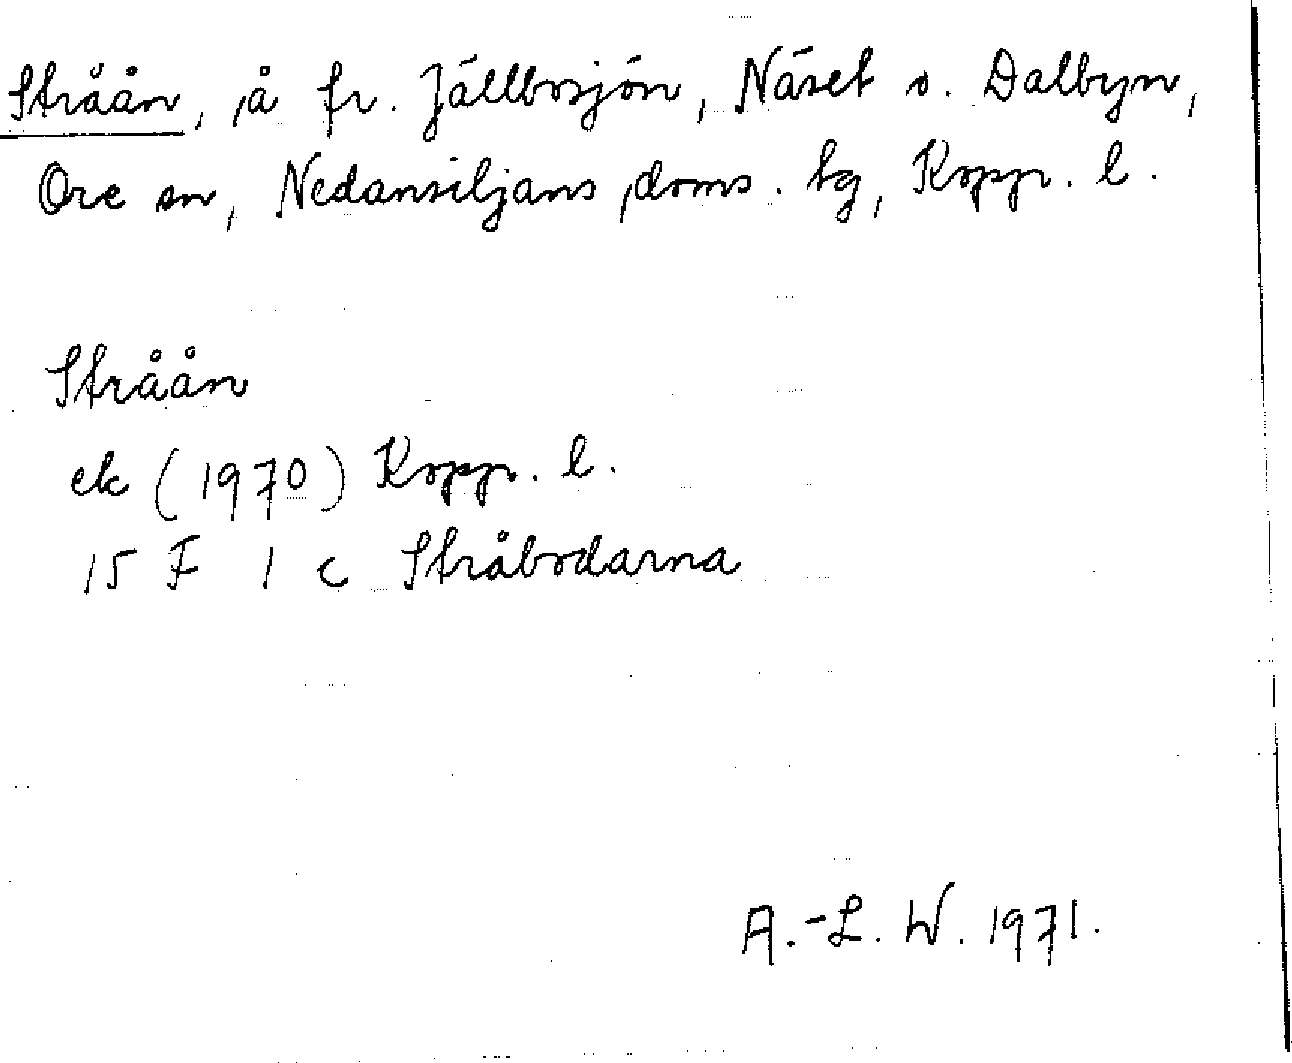 Stråån, å fr. Jällbosjön, Näset s. Dalbyn,
Ore sn, Nedansiljans doms. tg, Kopp. l.
Stråån
ek (1970) Kopp. l.
15 F 1 c Stråbodarna
A.-L. W. 1971.